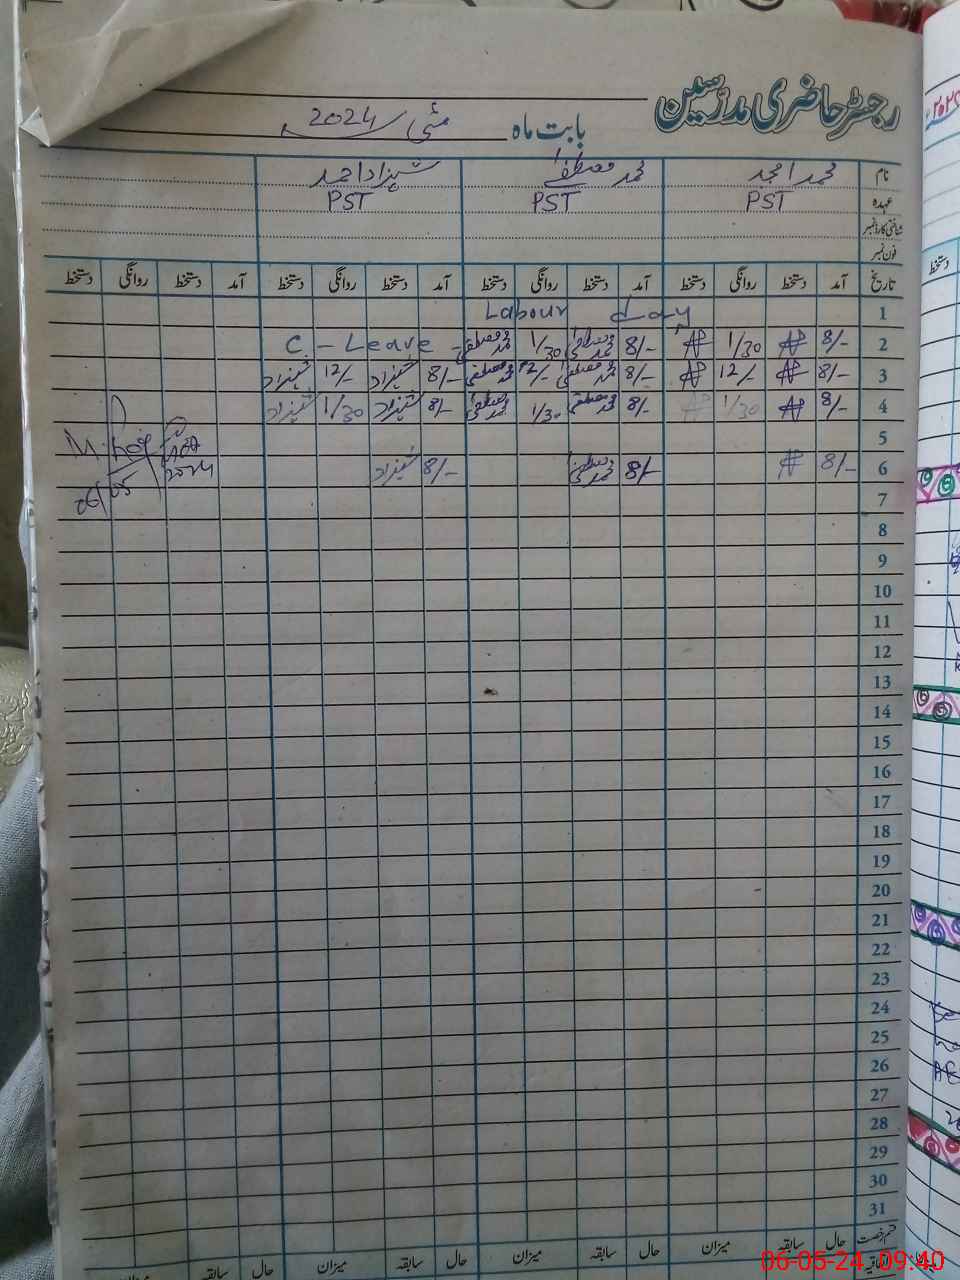 رجسٹر حاضری مدرسین
بابت ماہ مئی 2024
نام محمد امجد محمد مصطفیٰ شہزاد احمد
عہدہ PST PST PST
شناختی کارڈ نمبر
فون نمبر
تاریخ آمد دستخط روانگی دستخط آمد دستخط روانگی دستخط آمد دستخط روانگی دستخط آمد دستخط روانگی دستخط
1 Labour day
2 8/- 1/30 8/- محمد مصطفیٰ 1/30 محمد مصطفیٰ C - Leave -
3 8/- 12/- 8/- محمد مصطفیٰ 12/- محمد مصطفیٰ 8/- شہزاد 12/- شہزاد
4 8/- 1/30 8/- محمد مصطفیٰ 1/30 محمد مصطفیٰ 8/- شہزاد 1/30 شہزاد
5
6 8/- 8/- محمد مصطفیٰ 8/- شہزاد
06/05/2024
7
8
9
10
11
12
13
14
15
16
17
18
19
20
21
22
23
24
25
26
27
28
29
30
31
قسم رخصت حال سابقہ میزان حال سابقہ میزان حال سابقہ میزان حال سابقہ میزان
اتفاقیہ
06-05-24 09:40